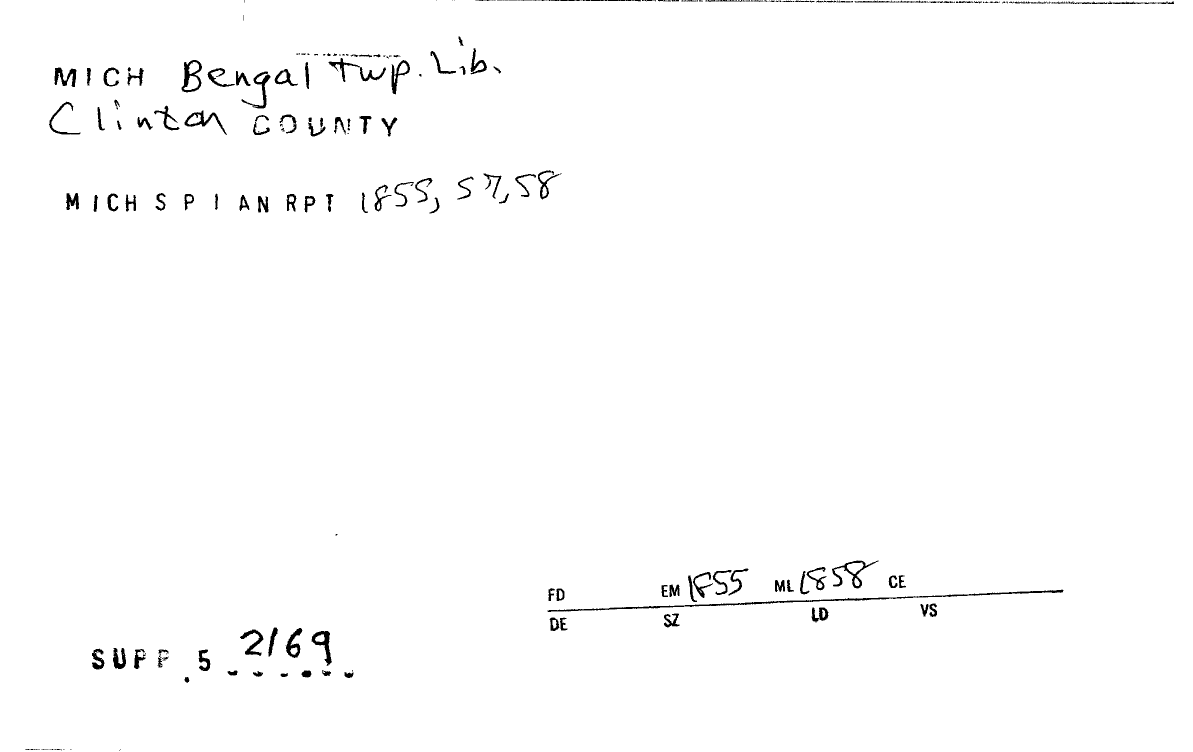 MICH Bengal Twp. Lib.
Clinton COUNTY
MICH S P I AN RPT 1855, 57, 58
FD EM 1855 ML 1858 CE
DE SZ LD VS
SUPP. 5 2169